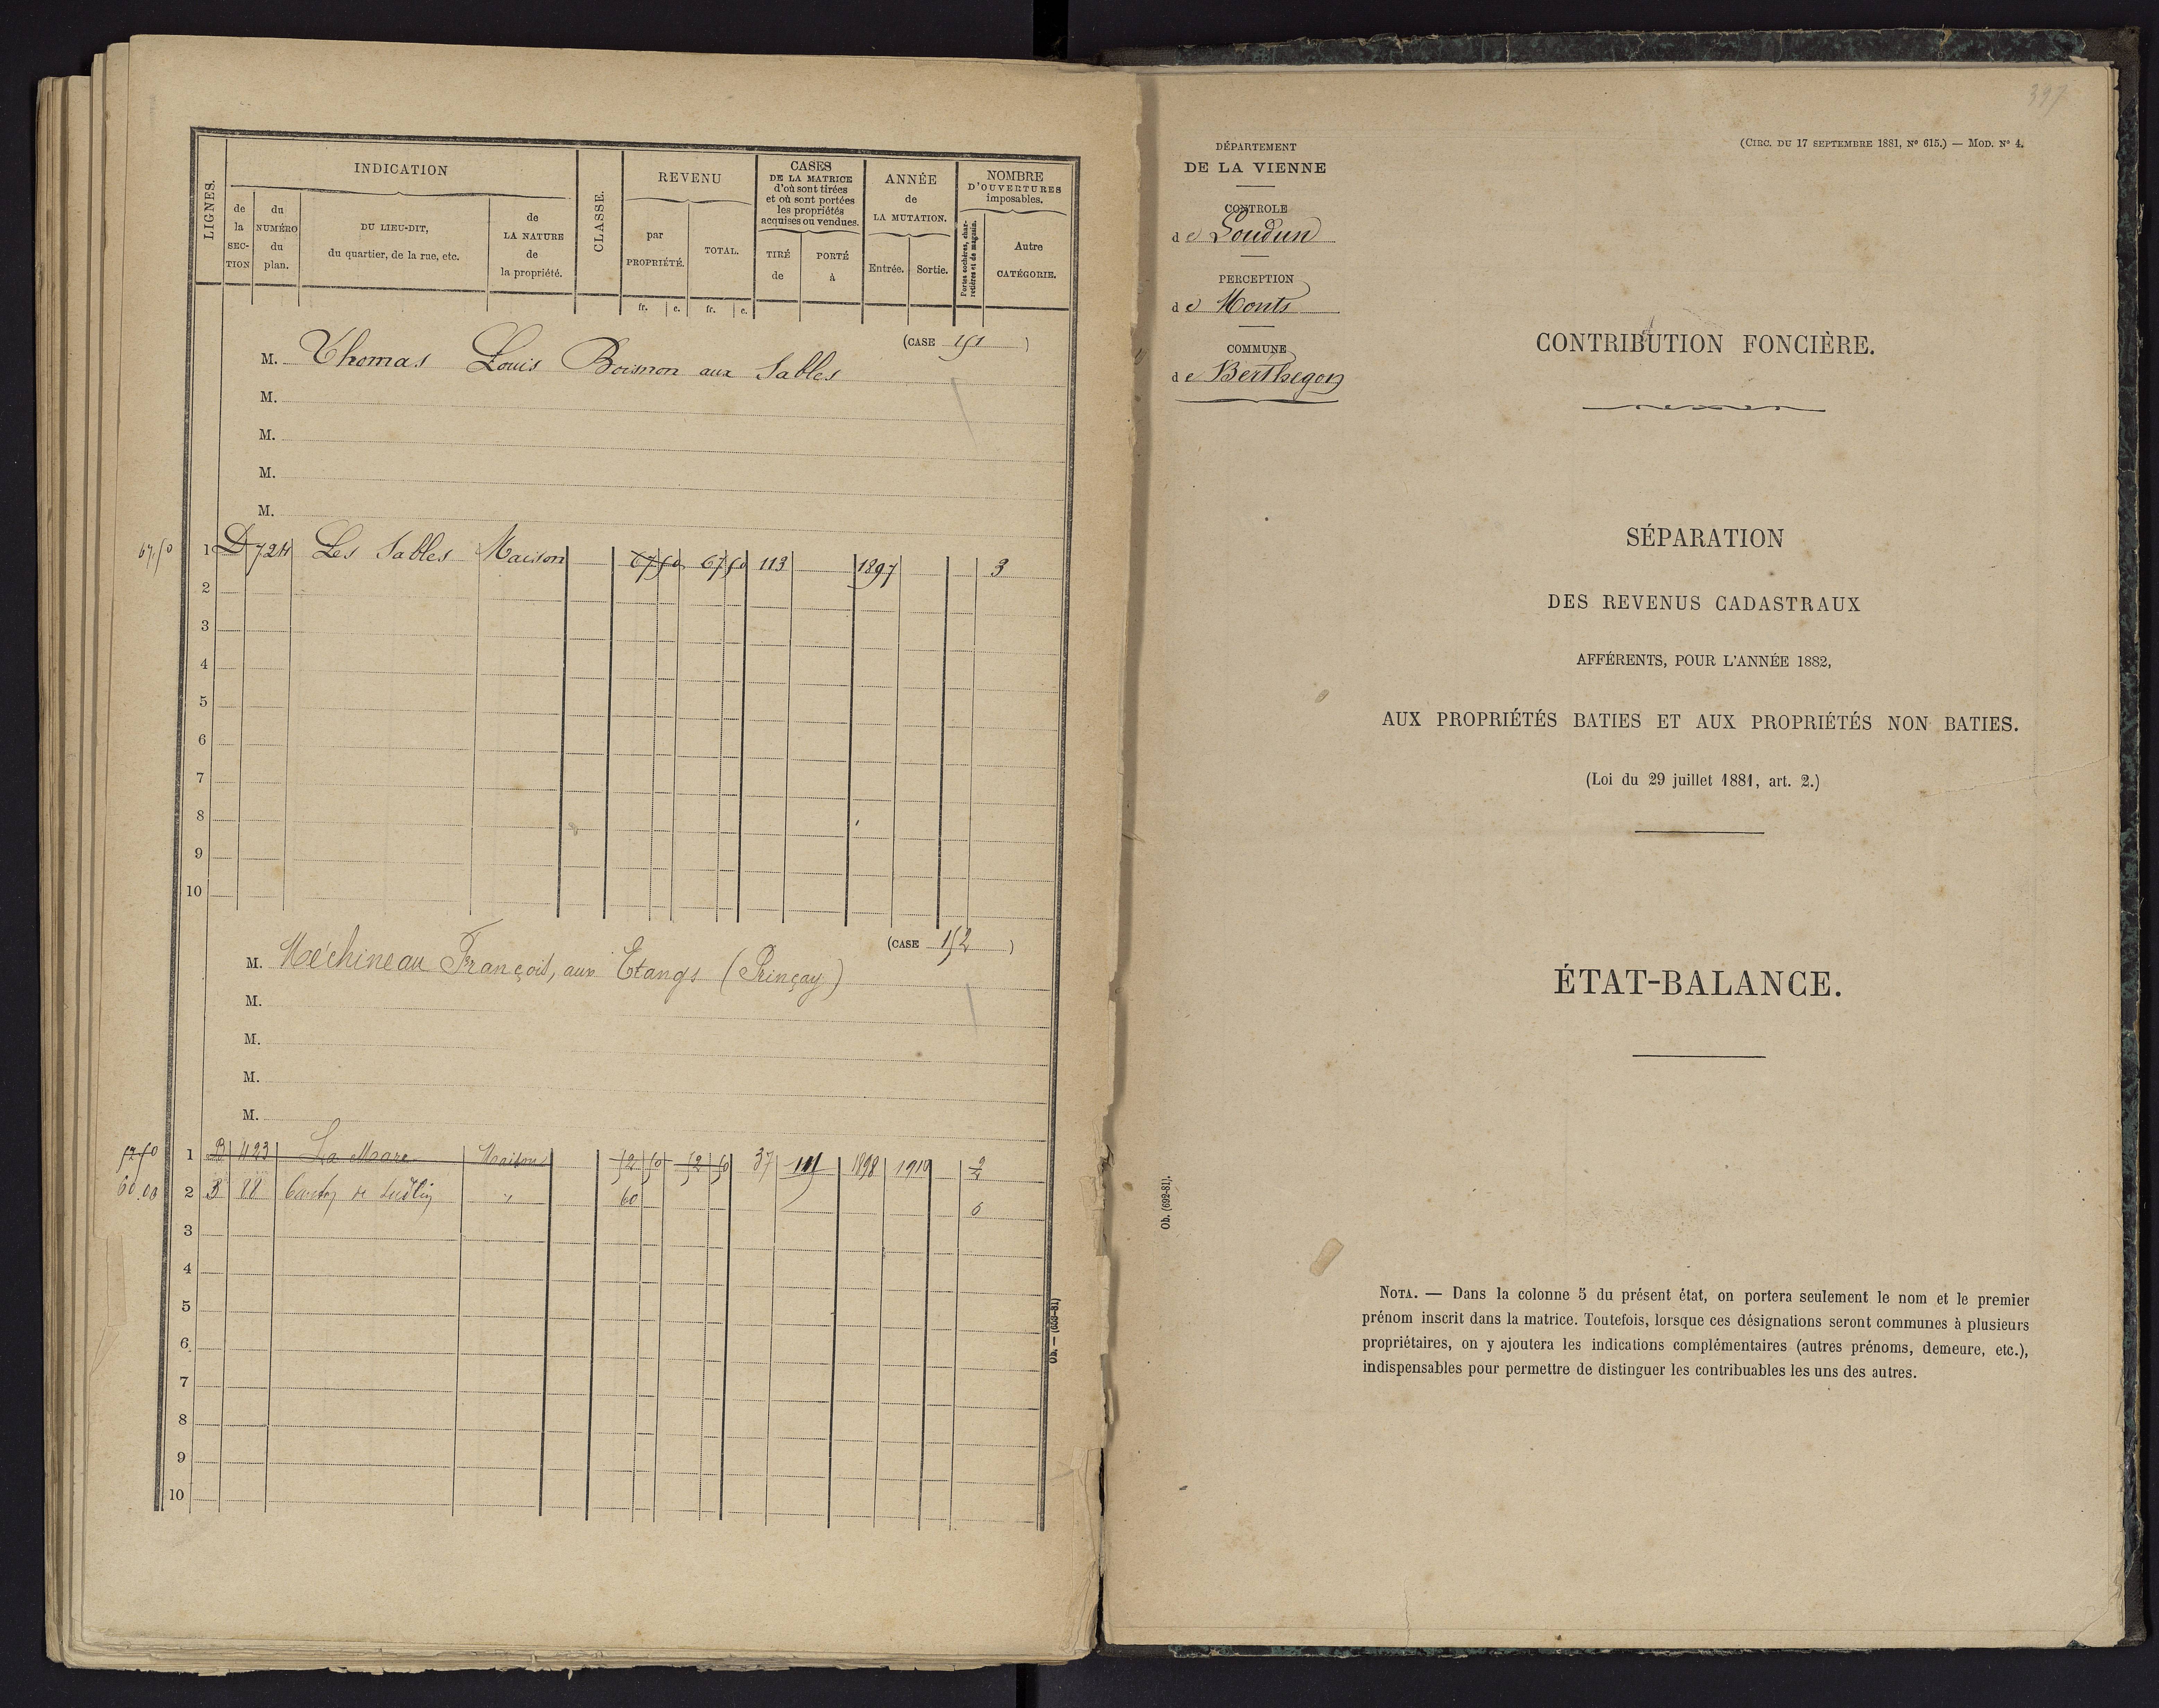 LIGNES.
INDICATION
de la SECTION
du NUMÉRO du plan.
DU LIEU-DIT, du quartier, de la rue, etc.
de LA NATURE de la propriété.
CLASSE.
REVENU
par PROPRIÉTÉ.
TOTAL.
CASES DE LA MATRICE d'où sont tirées et où sont portées les propriétés acquises ou vendues.
TIRÉ de
PORTÉ à
ANNÉE de LA MUTATION.
Entrée.
Sortie.
NOMBRE D'OUVERTURES imposables.
Portes cochères, charretières et de magasin.
Autre CATÉGORIE.
fr. c. fr. c.
(CASE 151 )
M. Thomas Louis Boisnon aux Sables
M.
M.
M.
M.
67,50 1 D 724 Les Sables Maison 67 50 67 50 113 1897 3
2
3
4
5
6
7
8
9
10
(CASE 152 )
M. Méchineau François, aux Etangs (Prinçay)
M.
M.
M.
M.
52 50 1 B 423 La Mare Maison 52 50 52 50 37 111 1898 1910 2
60.00 2 B 88 60 6
3
4
5
6
7
8
9
10
Ob. — (693-81)
397
(CIRC. DU 17 SEPTEMBRE 1881, N° 615.) — MOD. N° 4.
DÉPARTEMENT
DE LA VIENNE
CONTROLE
de Loudun
PERCEPTION
de Monts
COMMUNE
de Berthegon
CONTRIBUTION FONCIÈRE.
SÉPARATION
DES REVENUS CADASTRAUX
AFFÉRENTS, POUR L'ANNÉE 1882,
AUX PROPRIÉTÉS BATIES ET AUX PROPRIÉTÉS NON BATIES.
(Loi du 29 juillet 1881, art. 2.)
ÉTAT-BALANCE.
Ob. (692-81).
NOTA. — Dans la colonne 5 du présent état, on portera seulement le nom et le premier
prénom inscrit dans la matrice. Toutefois, lorsque ces désignations seront communes à plusieurs
propriétaires, on y ajoutera les indications complémentaires (autres prénoms, demeure, etc.),
indispensables pour permettre de distinguer les contribuables les uns des autres.